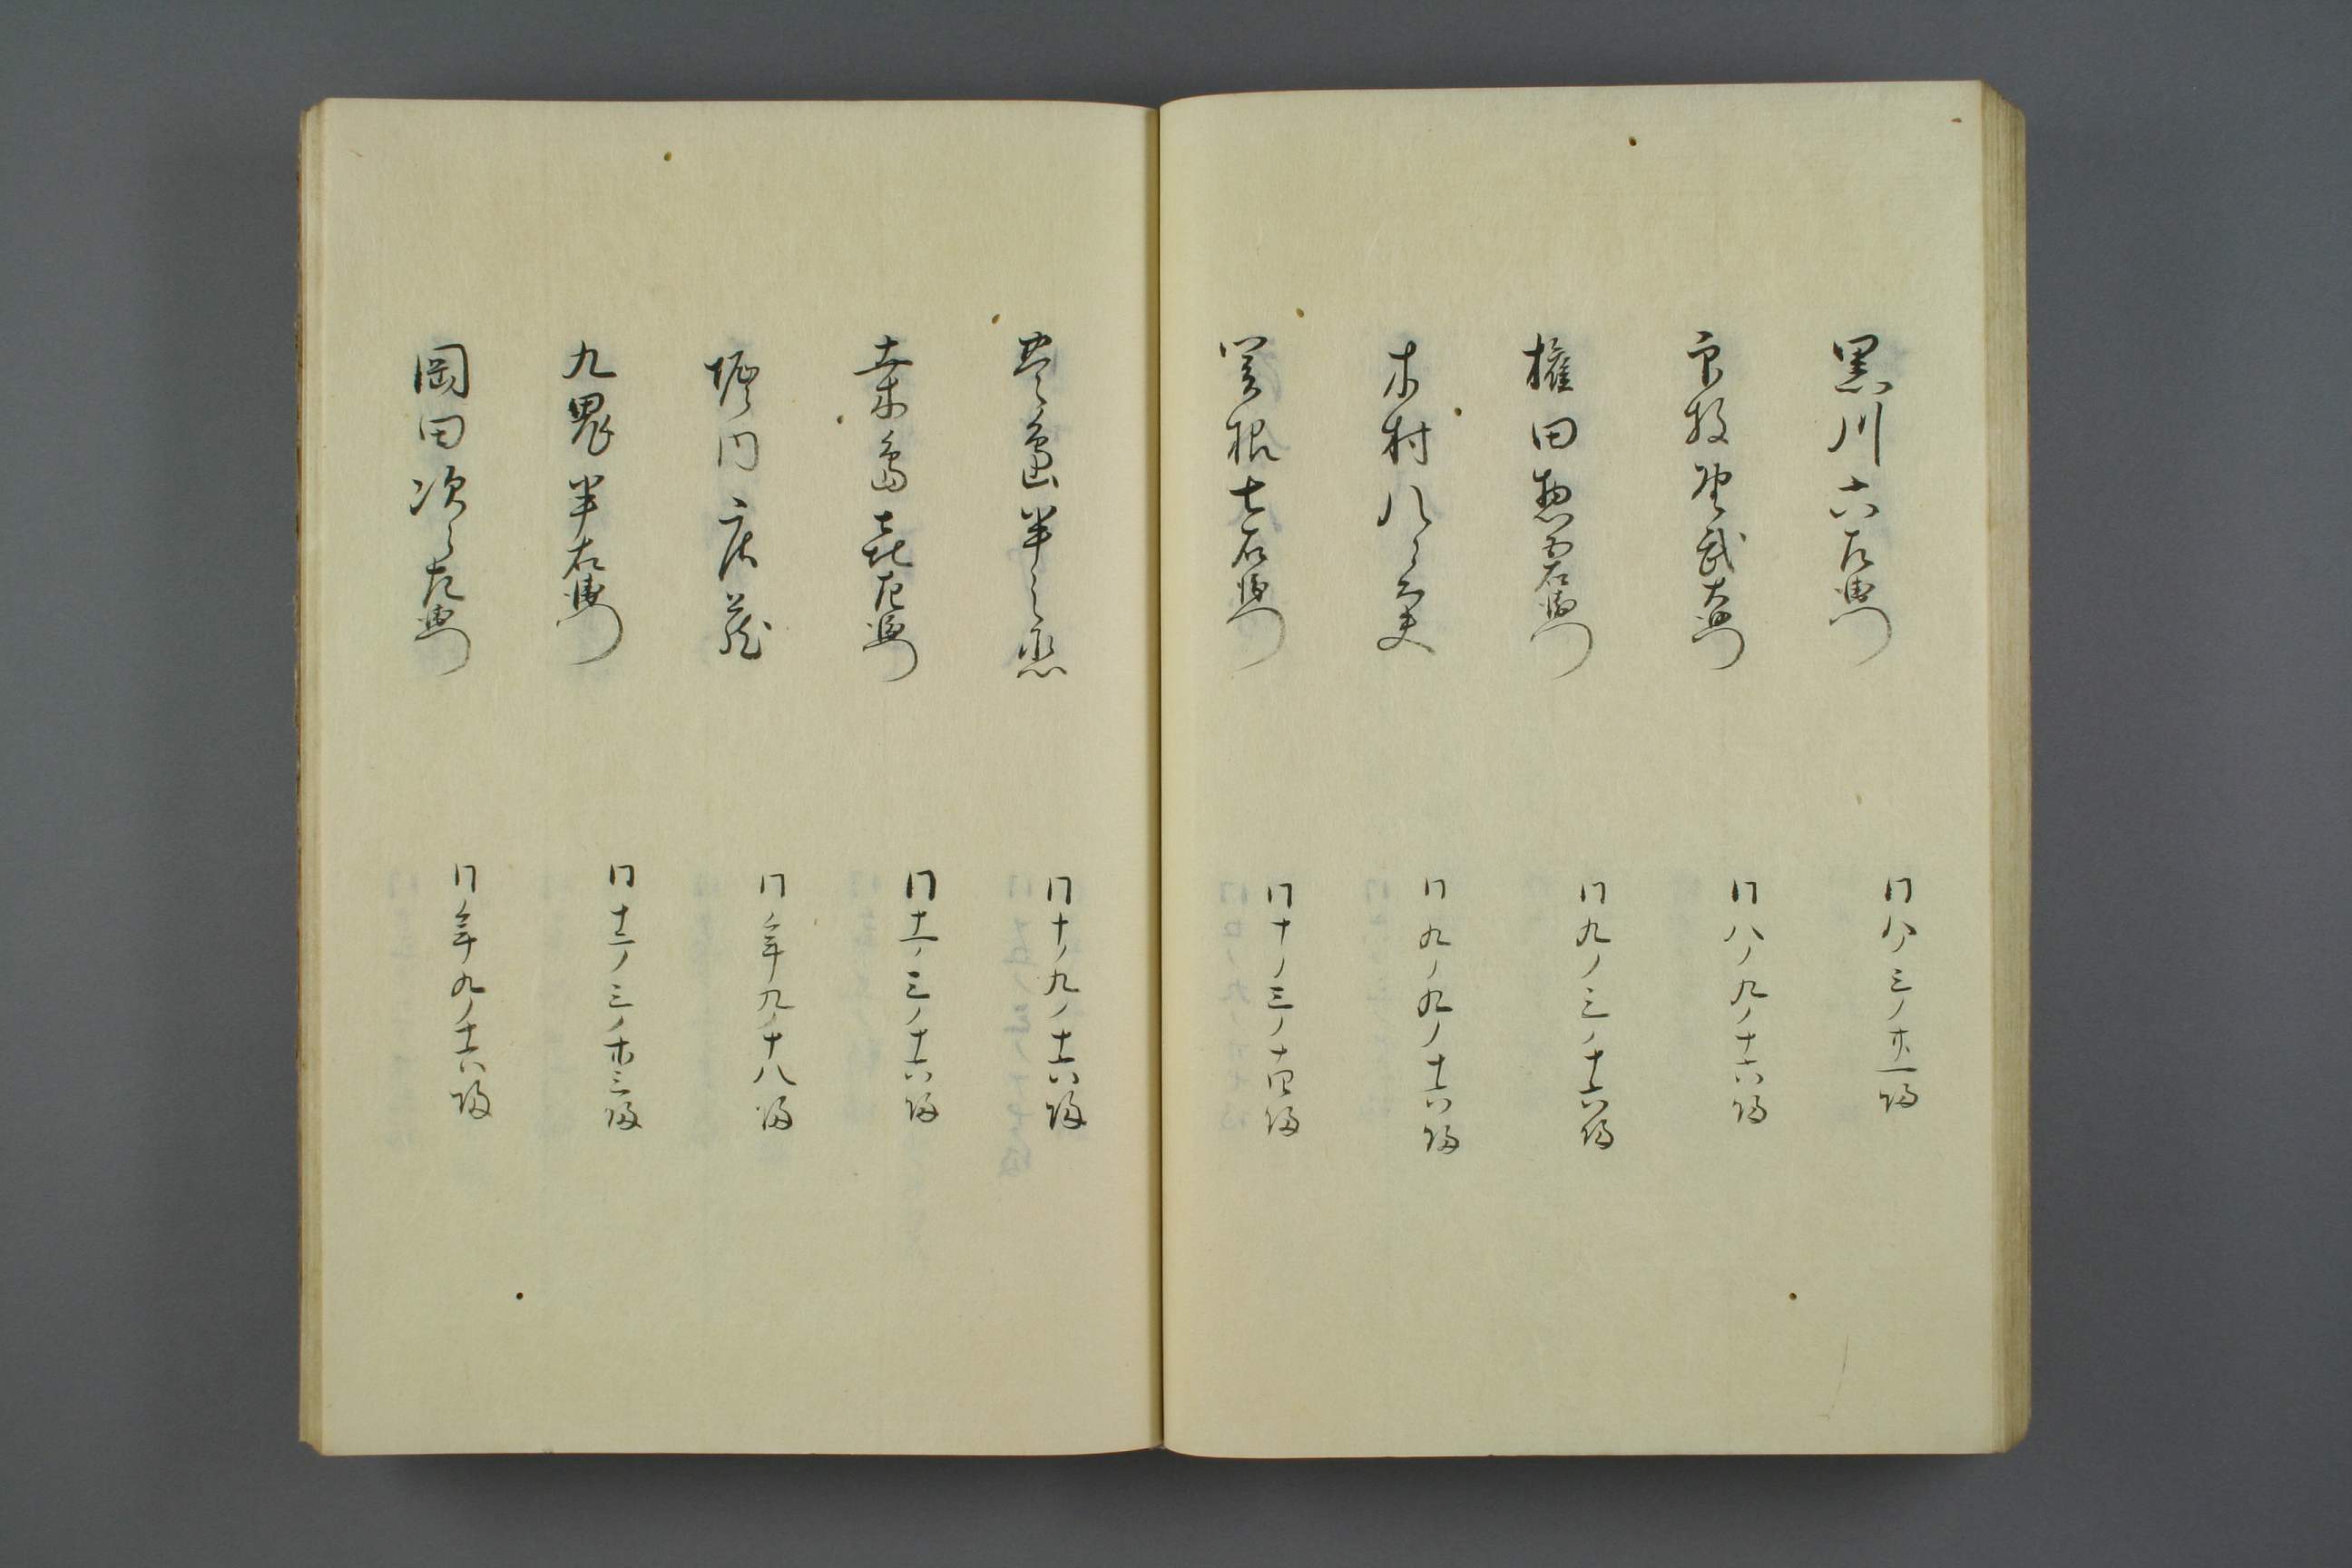 黒川六左衛門
同八ノ三ノ廿一帰
武右衛門
同八ノ九ノ十六帰
権田惣右衛門
同九ノ三ノ十六帰
木村八之丞
同九ノ九ノ十六帰
関根七右衛門
同十ノ三ノ十四帰
半之丞
同十ノ九ノ十六帰
桑島喜左衛門
同十一ノ三ノ十六帰
堀内庄蔵
同年九ノ十八帰
九鬼半右衛門
同十二ノ三ノ廿三帰
岡田次左衛門
同年九ノ十六帰